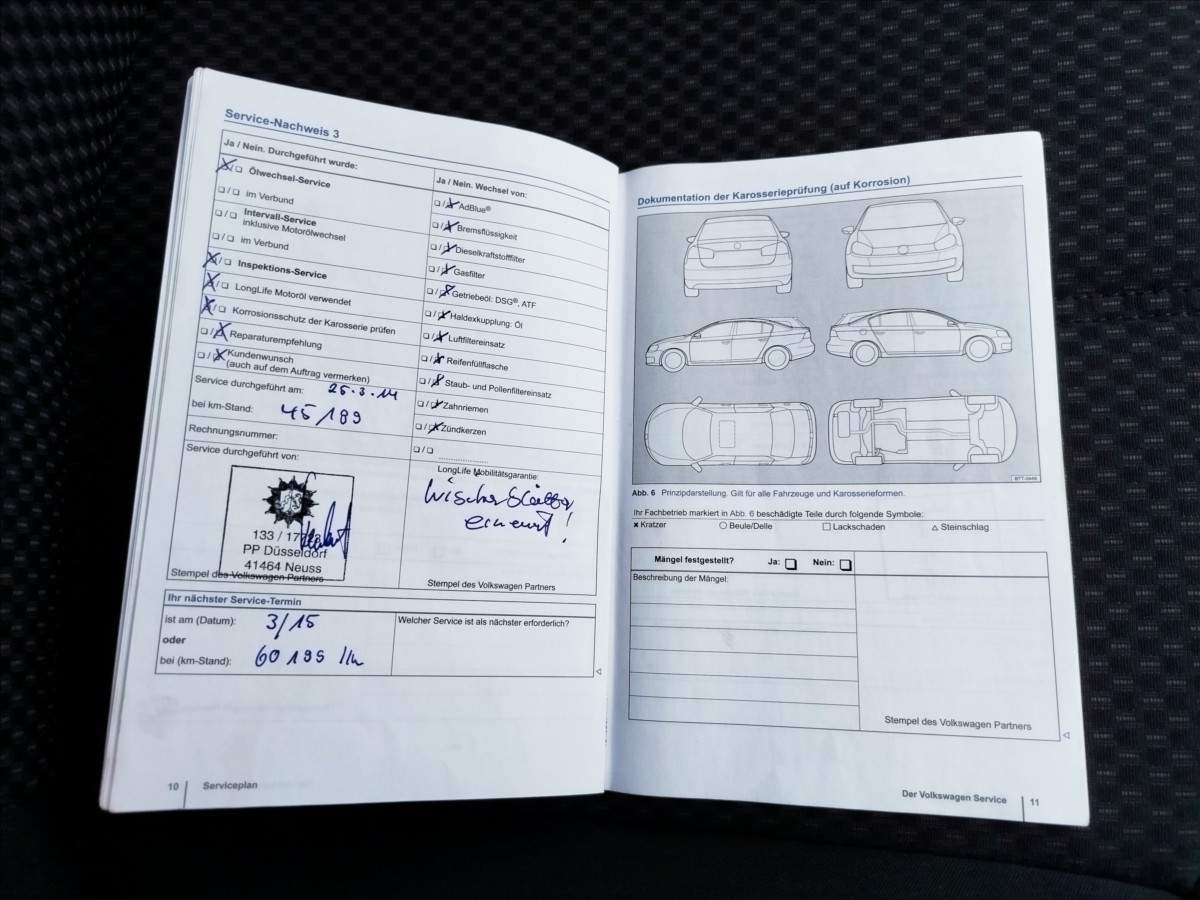 Service-Nachweis 3
Ja / Nein. Durchgeführt wurde:
Ölwechsel-Service
im Verbund
Intervall-Service
inklusive Motorölwechsel
im Verbund
Inspektions-Service
LongLife Motoröl verwendet
Korrosionsschutz der Karosserie prüfen
Reparaturempfehlung
Kundenwunsch
(auch auf dem Auftrag vermerken)
Service durchgeführt am: 25.3.14
bei km-Stand: 45189
Rechnungsnummer:
Service durchgeführt von:
133 / 17
PP Düsseldorf
41464 Neuss
Stempel des Volkswagen Partners
Ja / Nein. Wechsel von:
AdBlue®
Bremsflüssigkeit
Dieselkraftstofffilter
Gasfilter
Getriebeöl: DSG®, ATF
Haldexkupplung: Öl
Luftfiltereinsatz
Reifenfüllflasche
Staub- und Pollenfiltereinsatz
Zahnriemen
Zündkerzen
LongLife Mobilitätsgarantie:
Wischerblätter
erneuert!
Stempel des Volkswagen Partners
Ihr nächster Service-Termin
ist am (Datum): 3/15
oder
bei (km-Stand): 60195 km
Welcher Service ist als nächster erforderlich?
10 Serviceplan
Dokumentation der Karosserieprüfung (auf Korrosion)
Abb. 6 Prinzipdarstellung. Gilt für alle Fahrzeuge und Karosserieformen.
Ihr Fachbetrieb markiert in Abb. 6 beschädigte Teile durch folgende Symbole:
Kratzer Beule/Delle Lackschaden Steinschlag
Mängel festgestellt? Ja: Nein:
Beschreibung der Mängel:
Stempel des Volkswagen Partners
Der Volkswagen Service 11